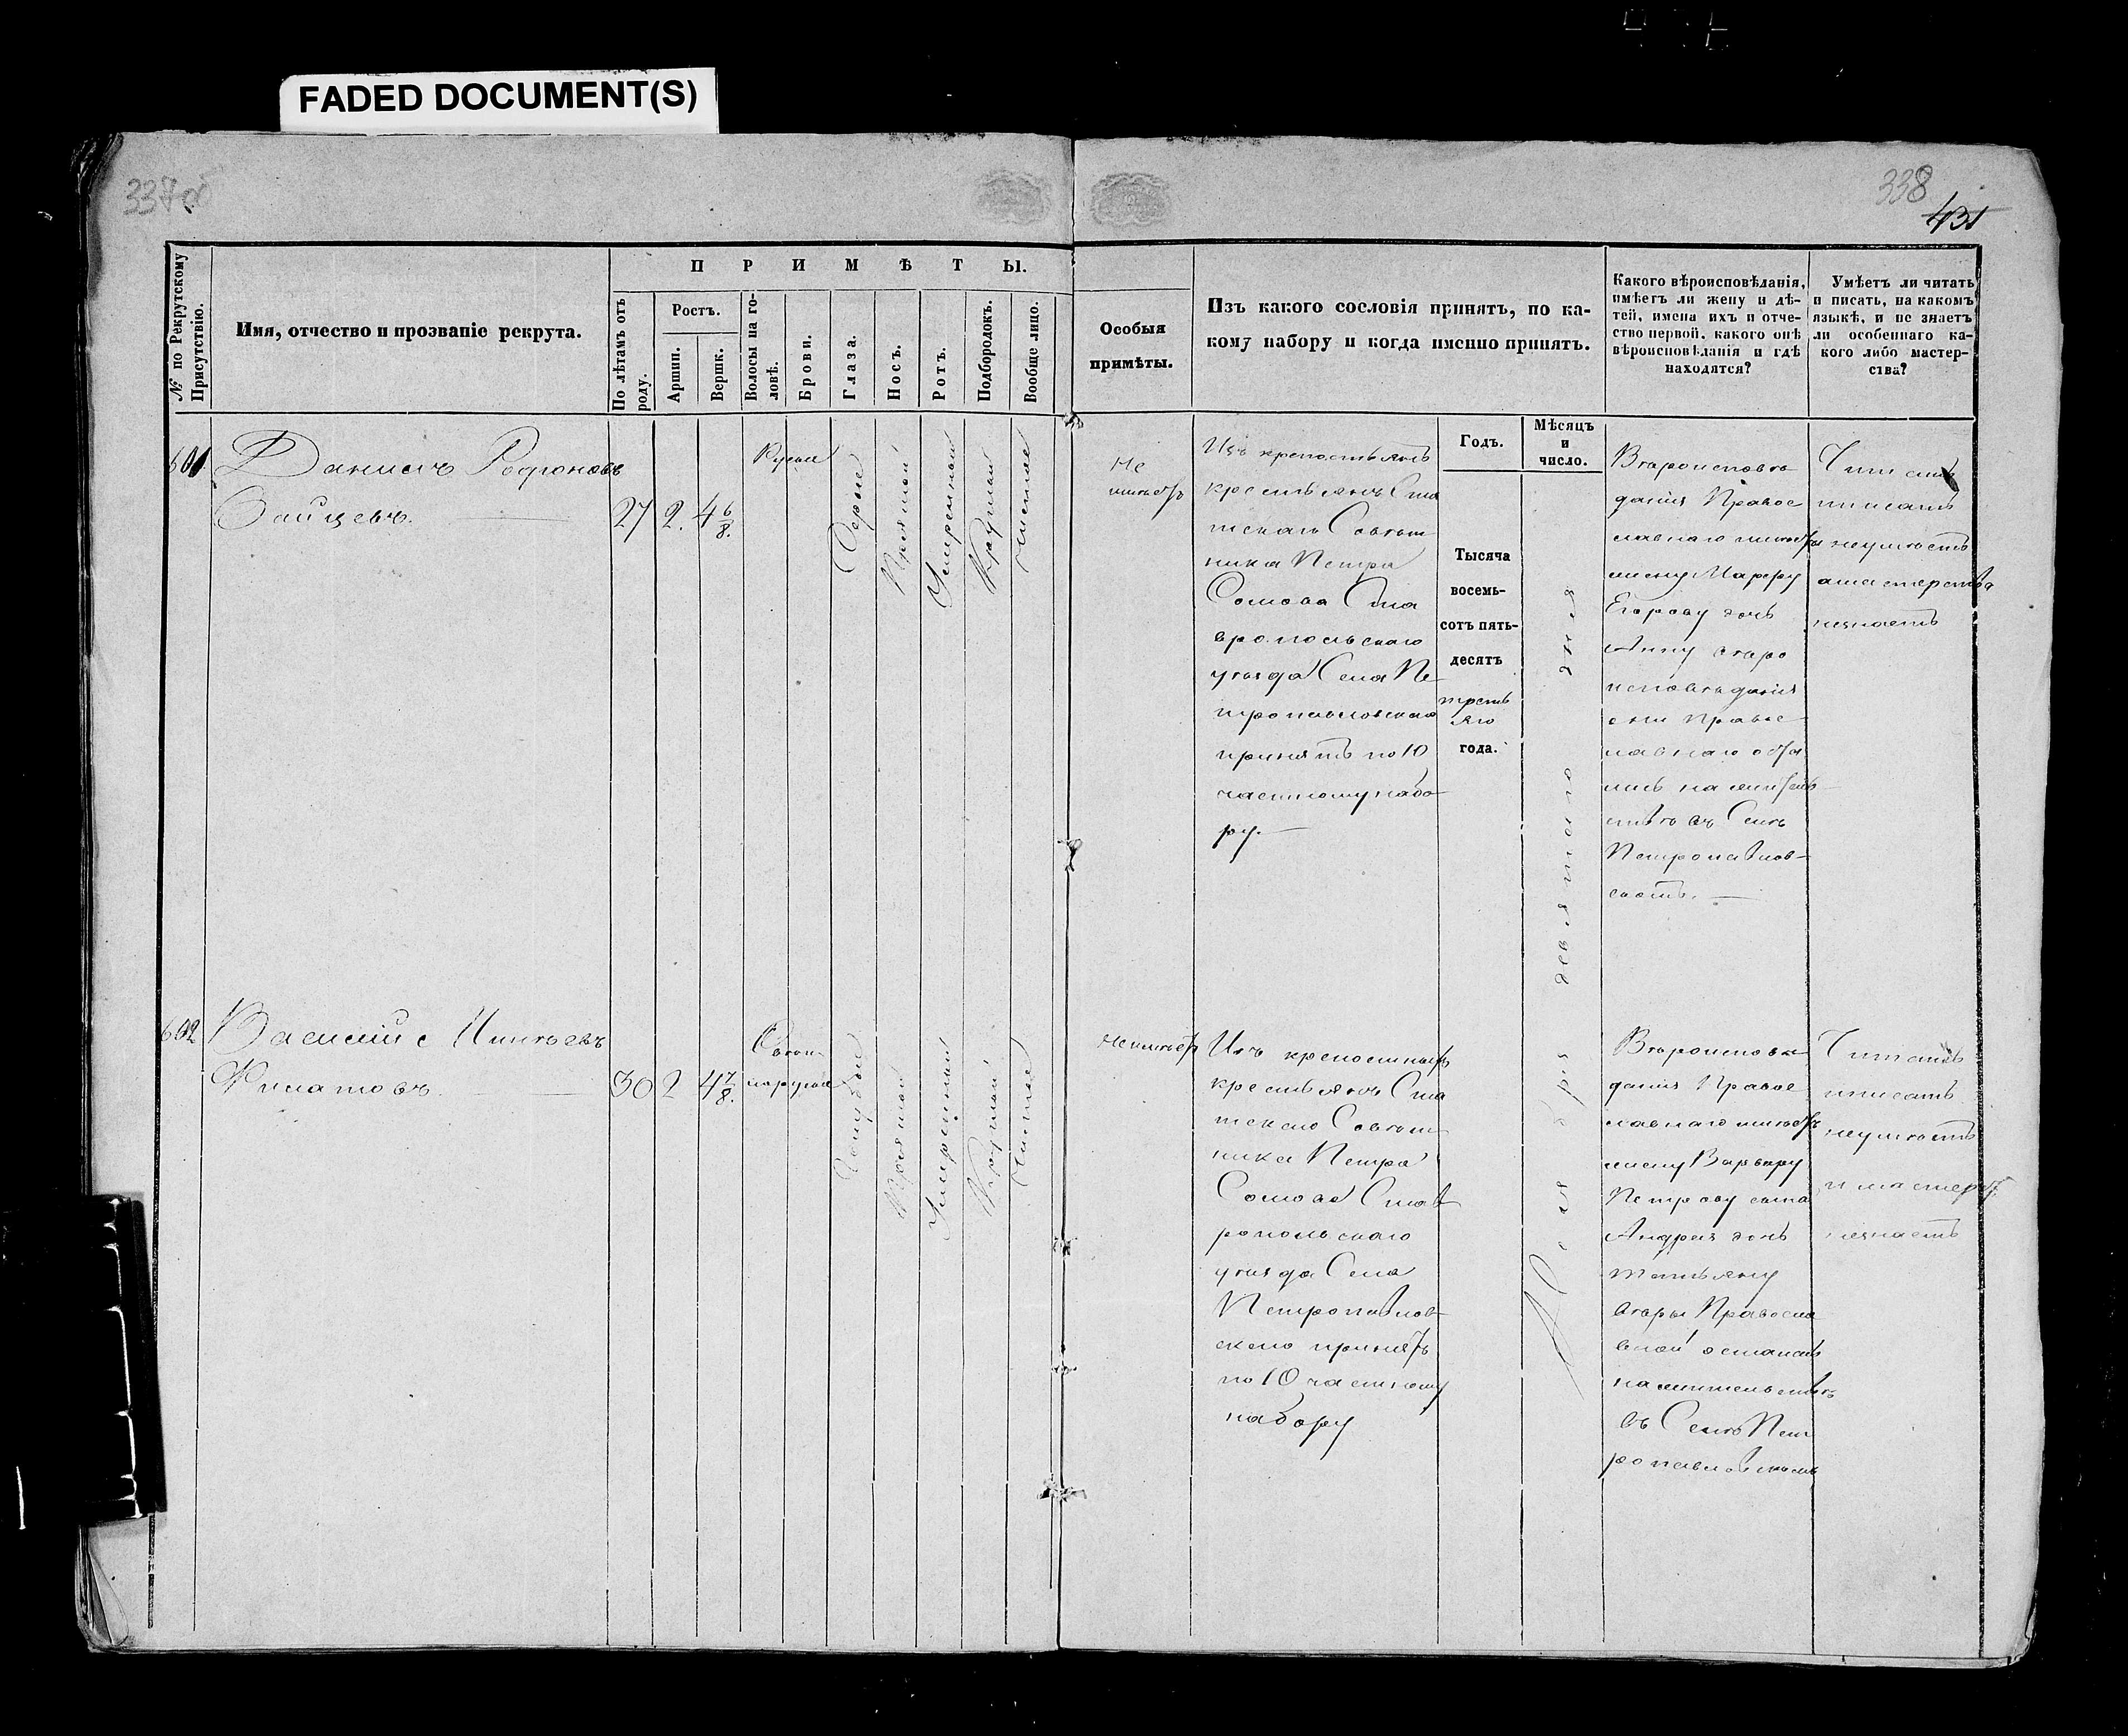 FADED DOCUMENT(S)
337об
338
431
№ по Рекрутскому Присутствію.
Имя, отчество и прозваніе рекрута.
ПРИМѢТЫ.
По лѣтамъ отъ роду.
Ростъ.
Аршин.
Вершк.
Волосы на головѣ.
Брови.
Глаза.
Носъ.
Ротъ.
Подбородокъ.
Вообще лицо.
Особыя
примѣты.
Изъ какого сословія принятъ, по ка-
кому набору и когда именно принятъ.
Какого вѣроисповѣданія,
имѣетъ ли жену и дѣ-
тей, имена ихъ и отче-
ство первой, какого онѣ
вѣроисповѣданія и гдѣ
находятся?
Умѣетъ ли читать
и писать, на какомъ
языкѣ, и не знаетъ
ли особеннаго ка-
кого либо мастер-
ства?
Годъ.
Мѣсяцъ
и
число.
601
Данилъ
Зайцевъ.
27
2.
4 6/8.
Русые
Серые
Прямой
Умеренный
Круглый
Чистое
Не
имѣетъ
Изъ
крестьянъ Ста
тскаго Совѣт
ника Петра
Сомова Ста
вропольскаго
уѣзда Села Пе
тропавловскаго
принятъ по 10
частному набо
ру.
Тысяча
восемь-
сотъ пять-
десятъ
треть
яго
года.
девятаго дня
Вѣроисповѣ
данія Правос
лавнаго имѣетъ
жену Марфу
Егорову дочь
Анну вѣро
исповѣданія
они Правос
лавнаго
на житель
ствѣ въ Селѣ
Петропавлов
скомъ.
Читать
писать
неумѣетъ
мастерства
незнаетъ
602
Василій
Филатовъ
30
2
4 7/8.
Свѣт
лорусые
Голубые
Прямой
Умеренный
Круглый
Чистое
неимѣетъ
Изъ крепостныхъ
крестьянъ Ста
тскаго Совѣт
ника Петра
Сомова Став
ропольскаго
уѣзда Села
Петропавлов
скаго принятъ
по 10 частному
набору
Вѣроисповѣ
данія Правос
лавнаго имѣетъ
жену Варвару
Петрову сына
Андрея дочь
татьяну
вѣры Правосла
вной остались
на жительствѣ
въ Селѣ Пет
ропавловскомъ
Читать
писать
неумѣетъ
и мастерст.
незнаетъ